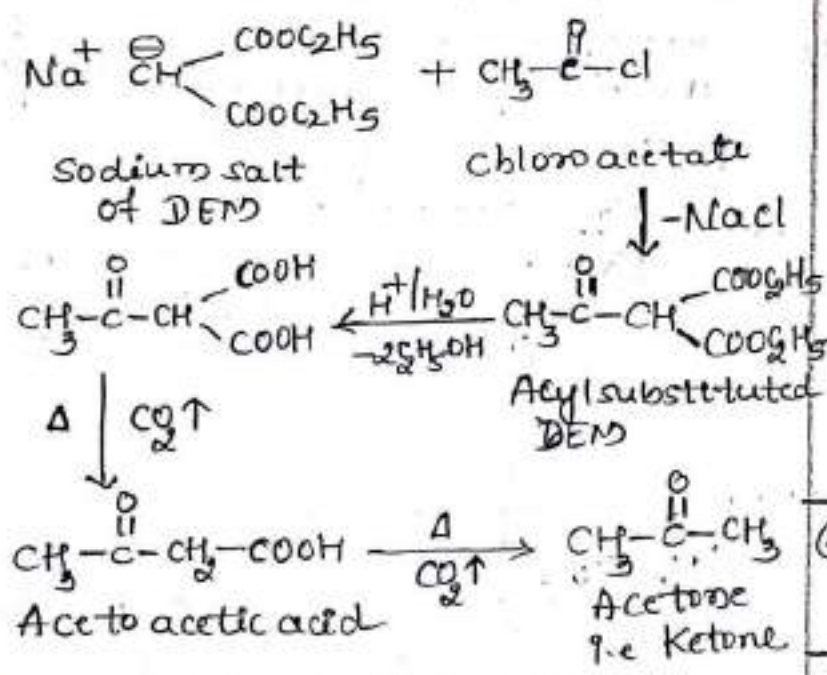 Na⁺ ⊖CH COOC2H5 COOC2H5 + CH3-C-Cl O
Sodium salt of DEM
Chloroacetate
-NaCl
CH3-C-CH O COOH COOH
H⁺/H2O
-2C2H5OH
CH3-C-CH O COOC2H5 COOC2H5
Acyl substituted DEM
Δ CO2↑
CH3-C-CH2-COOH O
Δ
CO2↑
CH3-C-CH3 O
Aceto acetic acid
Acetone
i.e Ketone